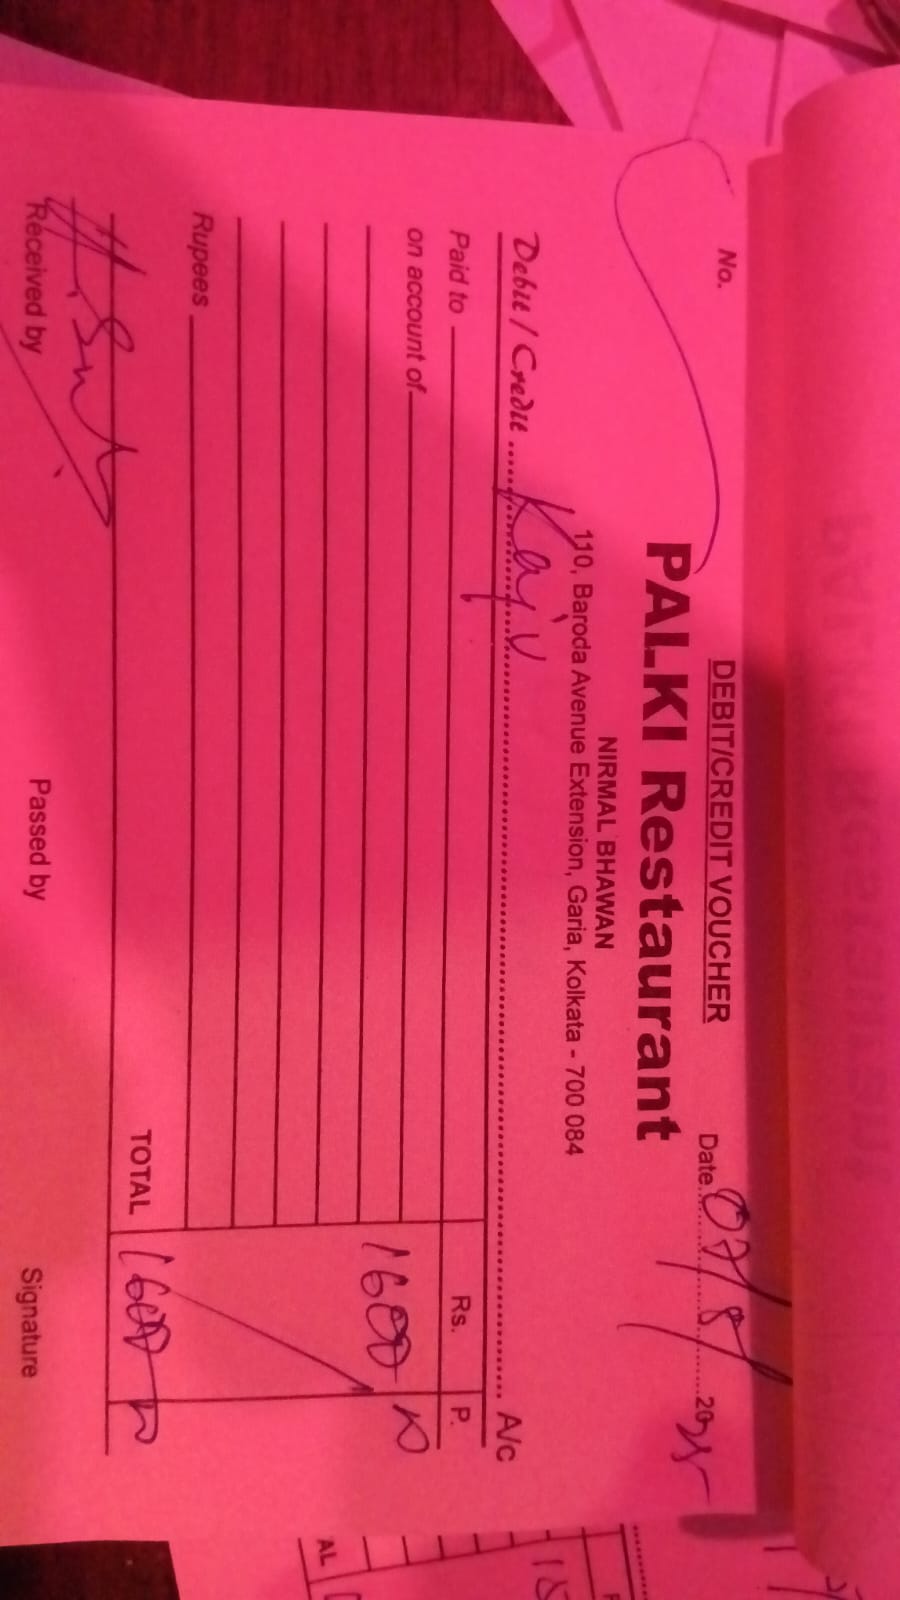 DEBIT/CREDIT VOUCHER
No.
Date 07/8/2025
PALKI Restaurant
NIRMAL BHAWAN
110, Baroda Avenue Extension, Garia, Kolkata - 700 084
Debit / Credit Kaju A/c
Paid to Rs. P.
on account of
1600
Rupees
TOTAL 1600
Received by Passed by Signature
AL